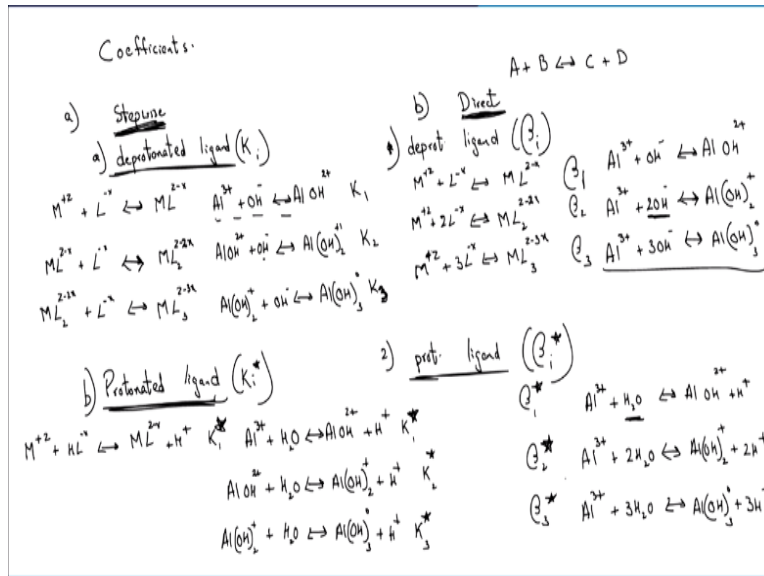 Coefficients.
A + B ↔ C + D
a) Stepwise
a) deprotonated ligand (Ki)
M⁺² + L⁻ˣ ↔ ML²⁻ˣ Al³⁺ + OH⁻ ↔ AlOH²⁺ K₁
ML²⁻ˣ + L⁻ˣ ↔ ML₂²⁻²ˣ AlOH²⁺ + OH⁻ ↔ Al(OH)₂⁺¹ K₂
ML₂²⁻²ˣ + L⁻ˣ ↔ ML₃²⁻³ˣ Al(OH)₂⁺ + OH⁻ ↔ Al(OH)₃° K₃
b) Protonated ligand (Ki*)
M⁺² + HL⁻ˣ ↔ ML²⁻ˣ + H⁺ K₁* Al³⁺ + H₂O ↔ AlOH²⁺ + H⁺ K₁*
AlOH²⁺ + H₂O ↔ Al(OH)₂⁺ + H⁺ K₂*
Al(OH)₂⁺ + H₂O ↔ Al(OH)₃° + H⁺ K₃*
b) Direct
) deprot ligand (βi)
M⁺² + L⁻ˣ ↔ ML²⁻ˣ β₁ Al³⁺ + OH⁻ ↔ AlOH²⁺
M⁺² + 2L⁻ˣ ↔ ML₂²⁻²ˣ β₂ Al³⁺ + 2OH⁻ ↔ Al(OH)₂⁺
M⁺² + 3L⁻ˣ ↔ ML₃²⁻³ˣ β₃ Al³⁺ + 3OH⁻ ↔ Al(OH)₃°
2) prot. ligand (βi*)
β₁* Al³⁺ + H₂O ↔ AlOH²⁺ + H⁺
β₂* Al³⁺ + 2H₂O ↔ Al(OH)₂⁺ + 2H⁺
β₃* Al³⁺ + 3H₂O ↔ Al(OH)₃° + 3H⁺